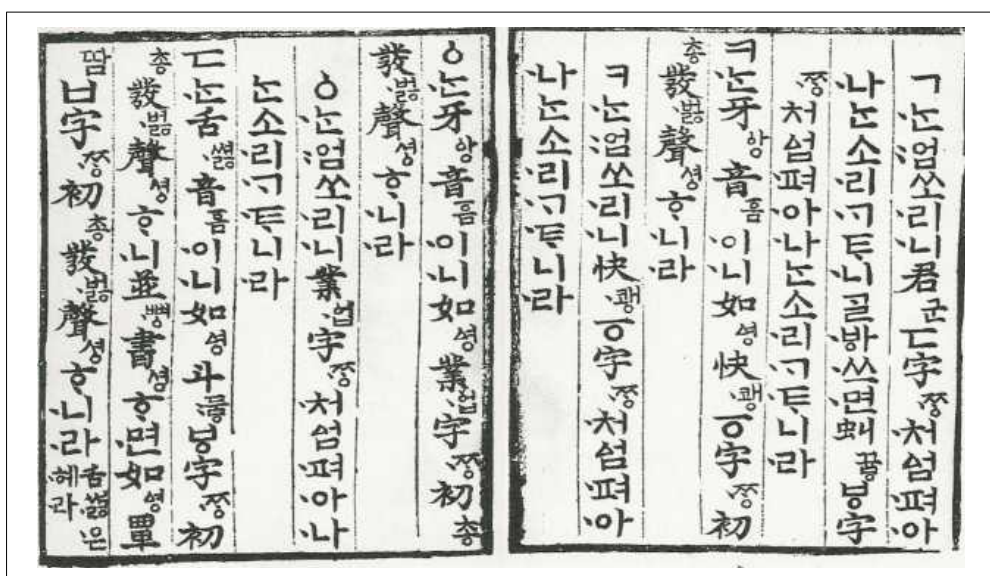 ㄱ·ᄂᆞᆫ:엄쏘·리·니君군ㄷ字·ᄍᆞᆼ·처ᅀᅥᆷ·펴·아
·나ᄂᆞᆫ소·리·ᄀᆞ·ᄐᆞ니ᄀᆞᆯ·ᄫᅡ·쓰·면虯끃ㅸ字
·ᄍᆞᆼ·처ᅀᅥᆷ·펴·아·나ᄂᆞᆫ소·리·ᄀᆞ·ᄐᆞ니·라
ㅋ·ᄂᆞᆫ牙ᅌᅡᆼ音ᅙᅳᆷ·이·니如ᅀᅧᆼ快·쾡ㆆ字·ᄍᆞᆼ初
총發·벓聲셩ᄒᆞ·니·라
ㅋ·ᄂᆞᆫ:엄쏘·리·니快·쾡ㆆ字·ᄍᆞᆼ·처ᅀᅥᆷ·펴·아
·나ᄂᆞᆫ소·리·ᄀᆞ·ᄐᆞ니·라
ㆁ·ᄂᆞᆫ牙ᅌᅡᆼ音ᅙᅳᆷ·이·니如ᅀᅧᆼ業·ᅌᅥᆸ字·ᄍᆞᆼ初총
發·벓聲셩ᄒᆞ·니·라
ㆁ·ᄂᆞᆫ:엄쏘·리·니業·ᅌᅥᆸ字·ᄍᆞᆼ·처ᅀᅥᆷ·펴·아·나
ᄂᆞᆫ소·리·ᄀᆞ·ᄐᆞ니·라
ㄷ·ᄂᆞᆫ舌·쎯音ᅙᅳᆷ·이·니如ᅀᅧᆼ斗:둫ㅸ字·ᄍᆞᆼ初
총發·벓聲셩ᄒᆞ·니並·뼝書셩ᄒᆞ·면如ᅀᅧᆼ覃
땀ㅂ字·ᄍᆞᆼ初총發·벓聲셩ᄒᆞ·니·라舌·쎯은·혀·라